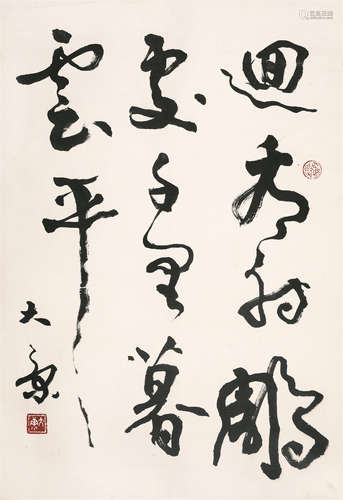 迴看射雕
處千里暮
雲平
大康